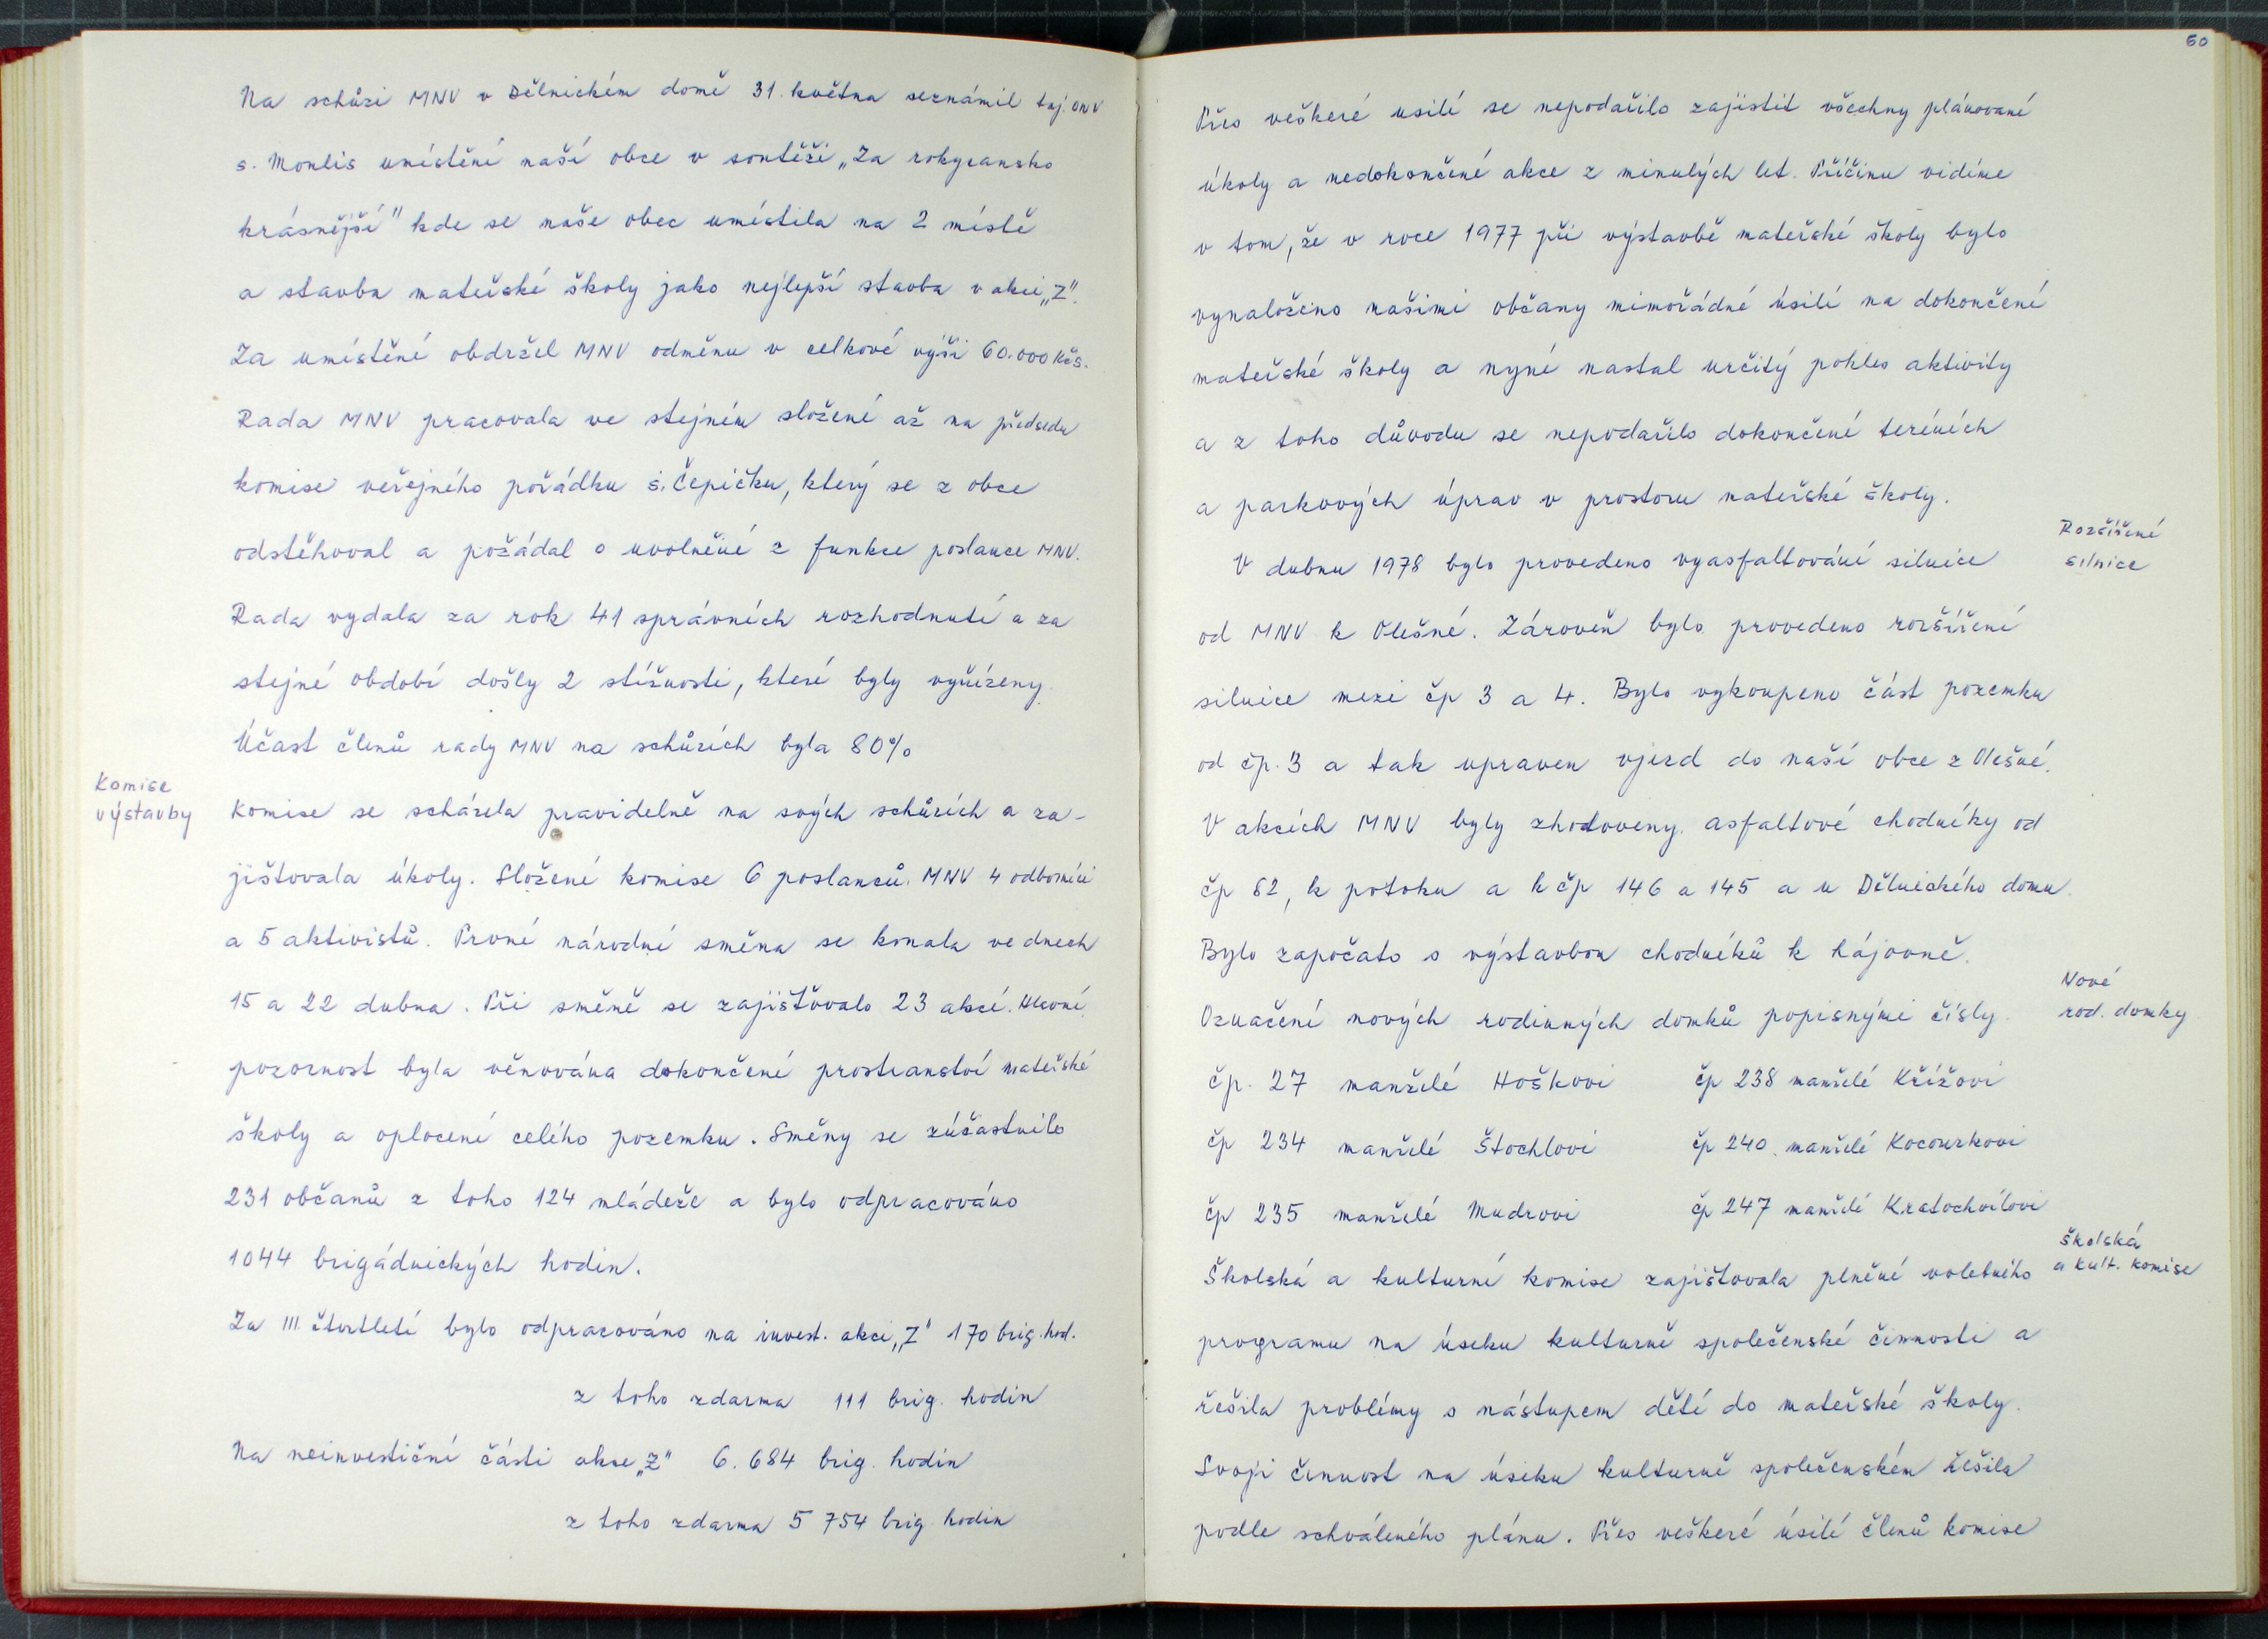 Na schůzi MNV v Dělnickém domě 31. května seznámil taj. ONV
s. Monlis umístění naší obce v soutěži „Za rokycansko
krásnější" kde se naše obec umístila na 2 místě
a stavba mateřské školy jako nejlepší stavba v akci „Z".
Za umístění obdržel MNV odměnu v celkové výši 60.000 Kčs.
Rada MNV pracovala ve stejném složení až na předsedu
komise veřejného pořádku s. Čepičku, který se z obce
odstěhoval a požádal o uvolnění z funkce poslance MNV.
Rada vydala za rok 41 správních rozhodnutí a za
stejné období došly 2 stížnosti, které byly vyřízeny.
Účast členů rady MNV na schůzích byla 80%
Komise
výstavby
Komise se scházela pravidelně na svých schůzích a za-
jištovala úkoly. Složení komise 6 poslanců. MNV 4 odborníci
a 5 aktivistů. První národní směna se konala ve dnech
15 a 22 dubna. Při směně se zajišťovalo 23 akcí. Hlavní
pozornost byla věnována dokončení prostranství mateřské
školy a oplocení celého pozemku. Směny se zúčastnilo
231 občanů z toho 124 mládeže a bylo odpracováno
1044 brigádnických hodin.
Za III. čtvrtletí bylo odpracováno na invest. akci „Z" 170 brig. hod.
z toho zdarma 111 brig. hodin
Na neinvestiční části akce „Z" 6.684 brig. hodin
z toho zdarma 5 754 brig. hodin
60
Přes veškeré usilí se nepodařilo zajistit všechny plánované
úkoly a nedokončené akce z minulých let. Příčinu vidíme
v tom, že v roce 1977 při výstavbě mateřské školy bylo
vynaloženo našimi občany mimořádné úsilí na dokončení
mateřské školy a nyní nastal určitý pokles aktivity
a z toho důvodu se nepodařilo dokončení teréních
a parkových úprav v prostoru mateřské školy.
Rozšíření
silnice
V dubnu 1978 bylo provedeno vyasfaltování silnice
od MNV k Olešné. Zároveň bylo provedeno rozšíření
silnice mezi čp 3 a 4. Bylo vykoupeno část pozemku
od čp. 3 a tak upraven vjezd do naší obce z Olešné.
V akcích MNV byly zhotoveny asfaltové chodníky od
čp 62, k potoku a k čp 146 a 145 a u Dělnického domu.
Bylo započato s výstavbou chodníků k hájovně.
Nové
rod. domky
Označení nových rodinných domků popisnými čísly.
čp. 27 manželé Hoškovi čp 238 manželé Křížovi
čp 234 manželé Štochlovi čp 240 manželé Kocourkovi
čp 235 manželé Mudrovi čp 247 manželé Kratochvílovi
školská
a kult. komise
Školská a kulturní komise zajištovala plnění volebního
programu na úseku kulturně společenské činnosti a
řešila problémy s nástupem dětí do mateřské školy.
Svoji činnost na úseku kulturně společenském řešila
podle schváleného plánu. Přes veškeré úsilí členů komise